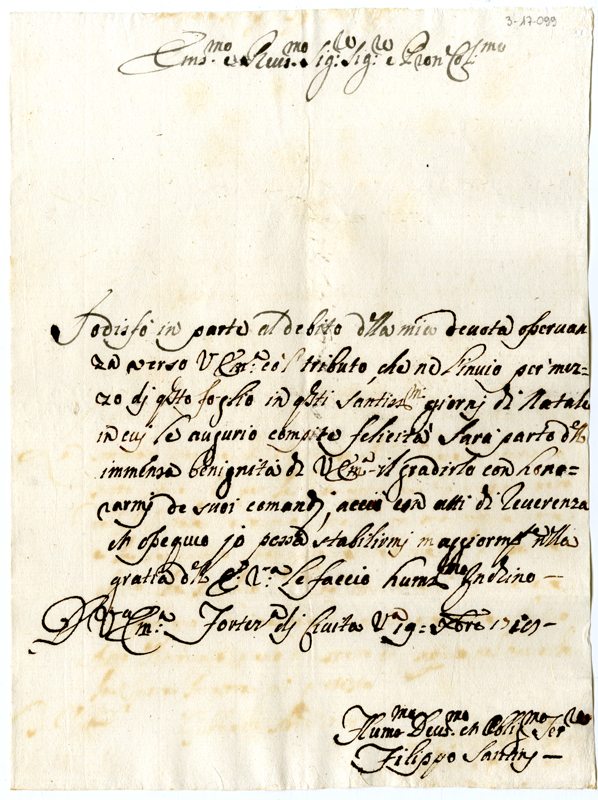 3-17-099
Em.mo e Reu.mo Sig.r Sig.r e Pron Col.mo
Sodisfo in parte al debito d'lla mia deuota osseruan
za uerso V. Em.a co'l tributo, che ne l'inuio per mez=
zo dj q'sto foglio in q'sti Santiss.mi giornj di Natale
in cuj le augurio compite felicità. Sarà parto d'll
immensa benignità di V. Em.a il gradirlo con hono=
rarmj de suoi comandj, acciò con atti di reuerenza
et ossequio jo possa stabilirmj maggiorm.te nella
gratia d'll E. V.ra le faccio hum.mo Inchino —
D. V. Em.a Fortez.a dj Ciuita V.a 19= Xbre 17 —
Hum.mo Deuo.mo et Obli.mo Ser.re
Filippo Santinj —